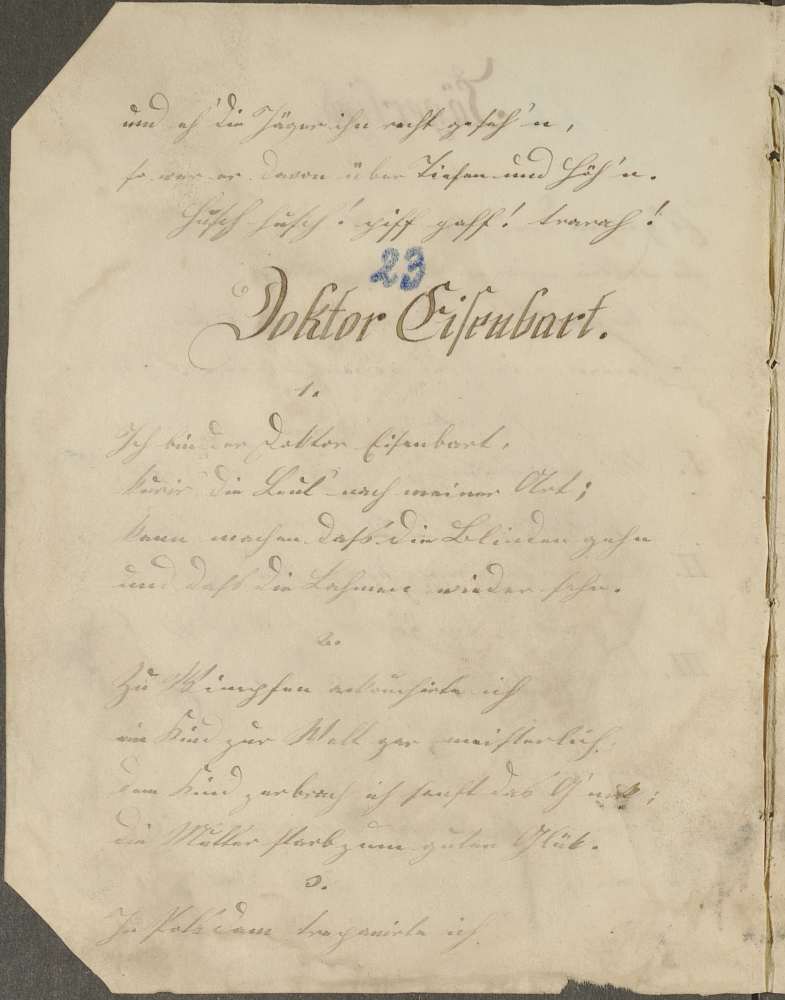 und eh' die Jäger ihn recht geseh'n,
so war er davon über Tiefen und Höh'n.
Husch husch! piff paff! trarah!
23
Doktor Eisenbart.
1.
Ich bin der Doktor Eisenbart,
kurir' die Leut' nach meiner Art;
kann machen daß die Blinden gehn
und daß die Lahmen wieder sehn.
2.
Zu Wimpfen accouchirte ich
ein Kind zur Welt gar meisterlich,
dem Kind zerbrach ich sanft das G'nick;
die Mutter starb zum guten Glük.
3.
In Potsdam trepanirte ich